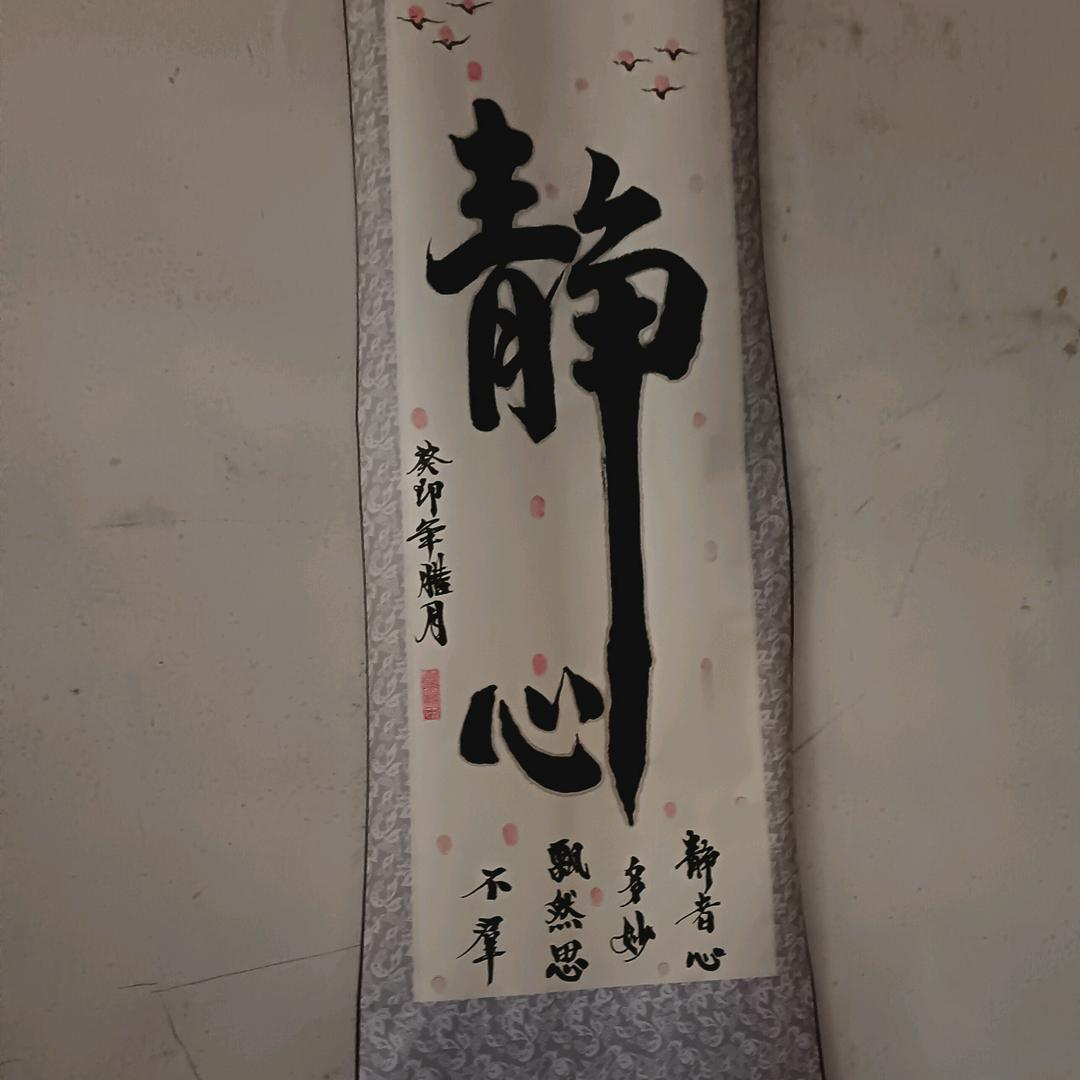 静心
静者心
多妙
飘然思
不群
癸卯年腊月